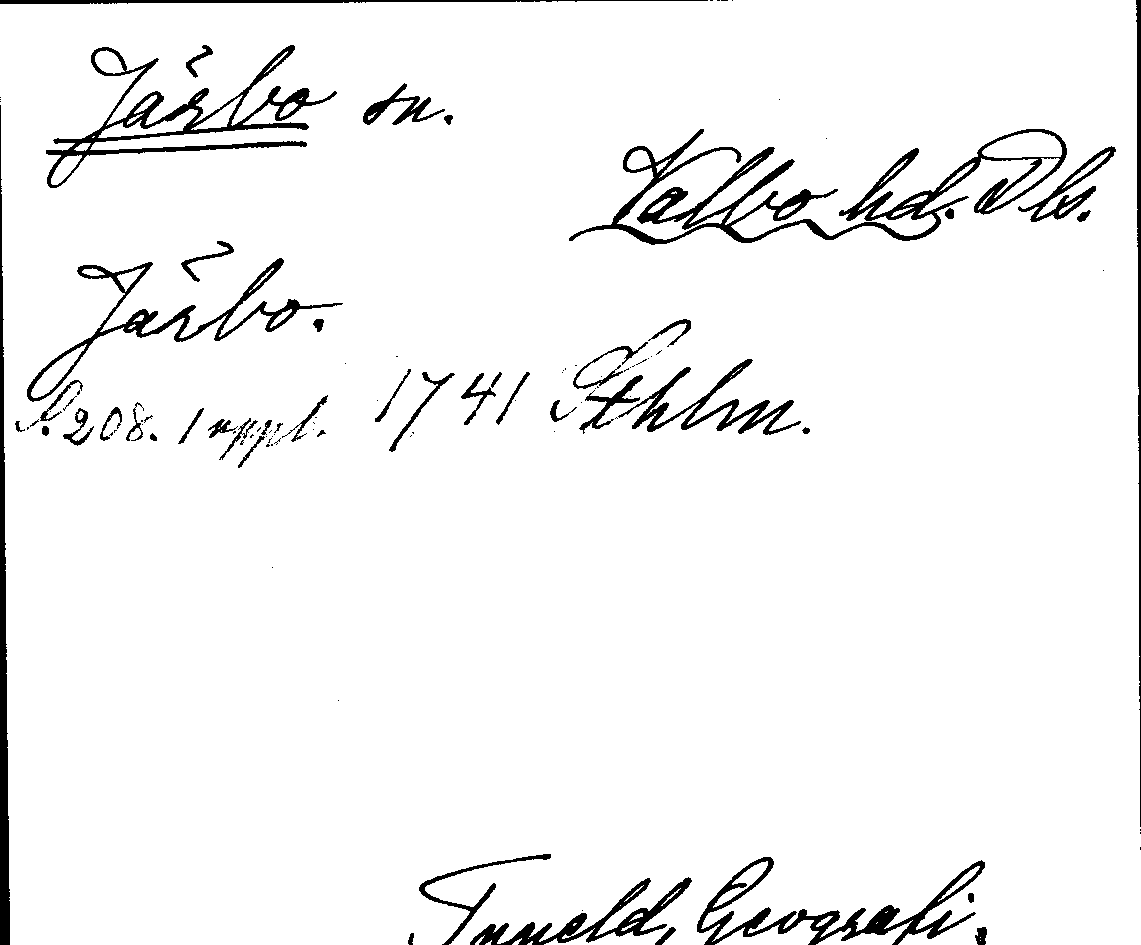 Järbo sn.
Valbo hd. Dls.
Järbo.
S. 208. 1 uppl. 1741 Sthlm.
Tuneld, Geografi.